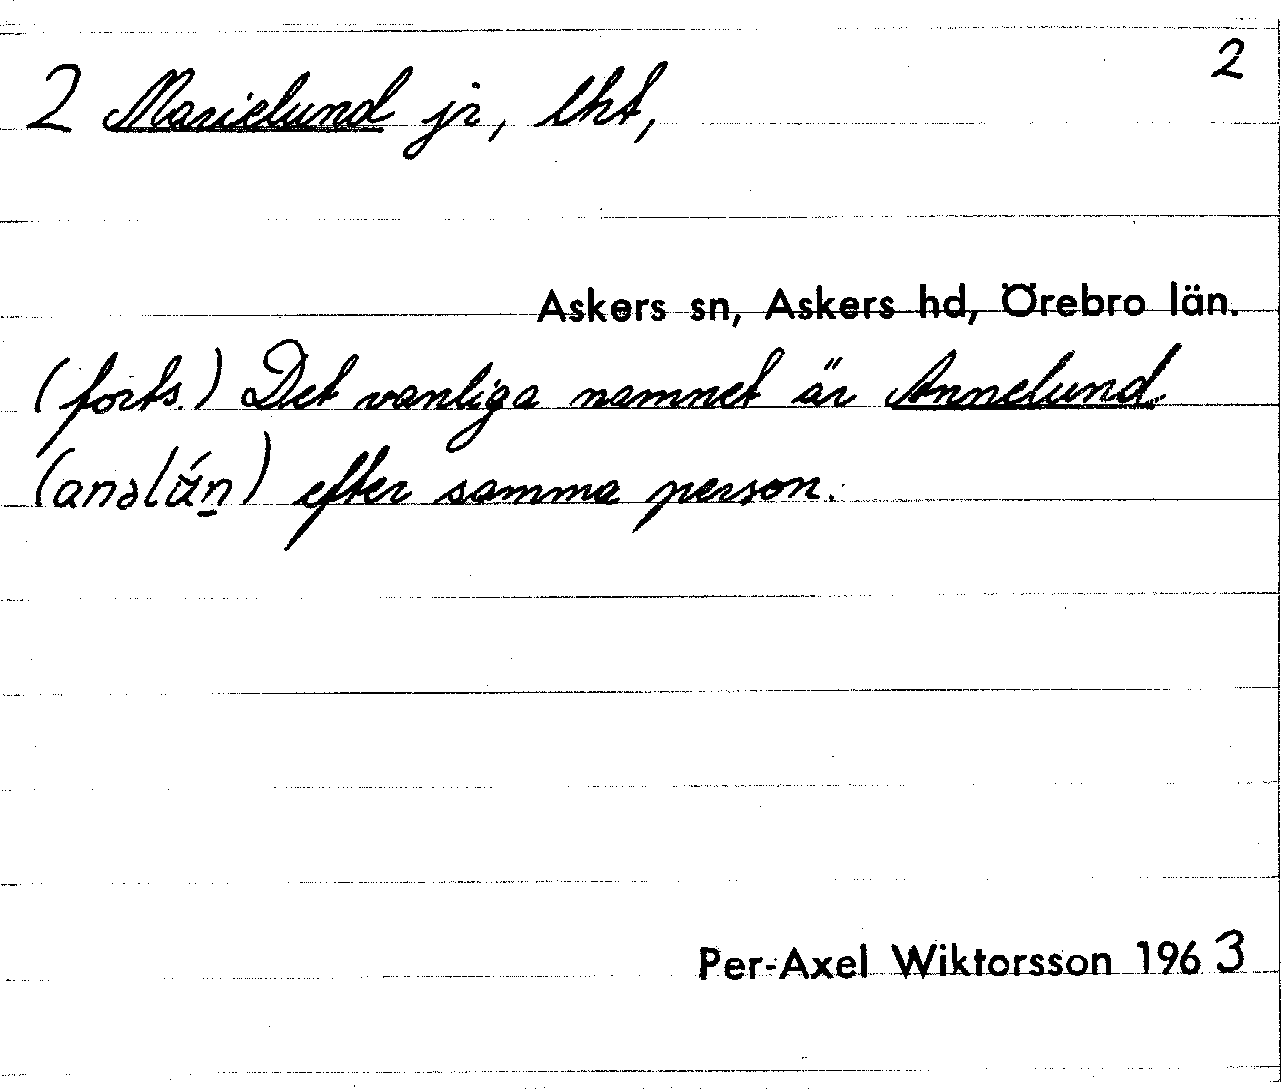 2
2 Marielund jr, lht,
Askers sn, Askers hd, Örebro län.
(forts.) Det vanliga namnet är Annelund
(anəlún̲) efter samma person.
Per-Axel Wiktorsson 1963